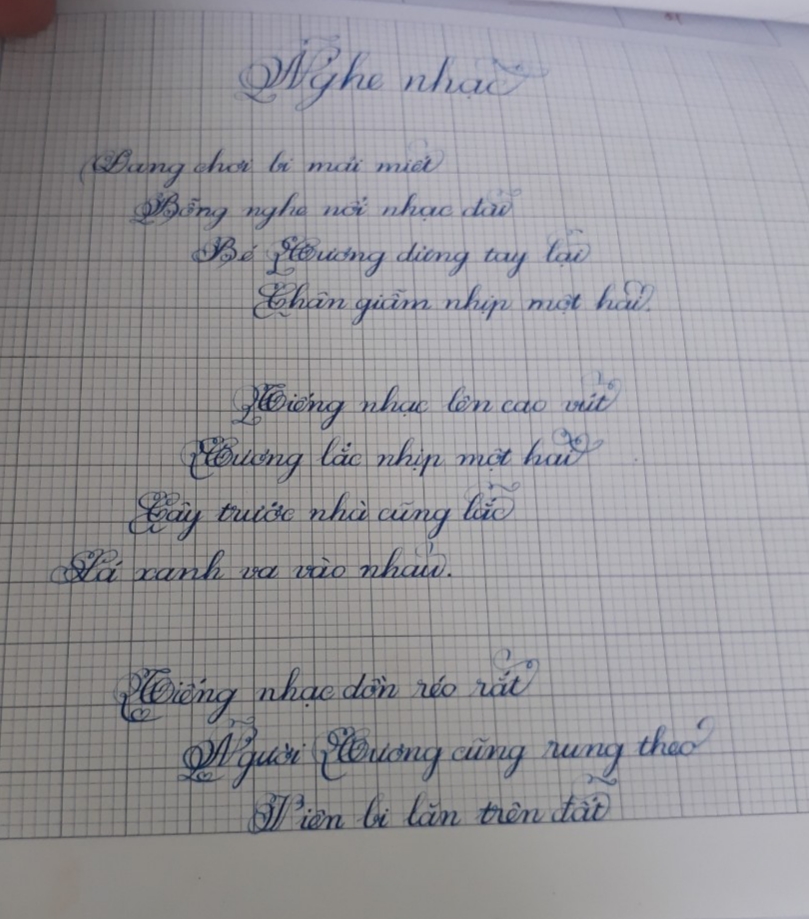 Nghe nhạc
Đang chơi bi mải miết
Bỗng nghe nổi nhạc đài
Bé Cương dừng tay lại
Chân giẫm nhịp một hai.
Tiếng nhạc lên cao vút
Cương lắc nhịp một hai
Cây trước nhà cũng lắc
Lá xanh va vào nhau.
Tiếng nhạc dồn réo rắt
Người Cương cũng rung theo
Viên bi lăn trên đất